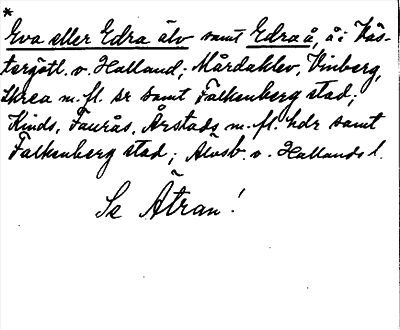 *
Eva eller Edra älv samt Edraå, å i Väs-
tergötl. o. Halland; Mårdaklev, Vinberg,
Skrea m.fl. sr samt Falkenberg stad;
Kinds, Faurås, Årstads m.fl. hdr samt
Falkenberg stad; Älvsb. o. Hallands l.
Se Ätran!